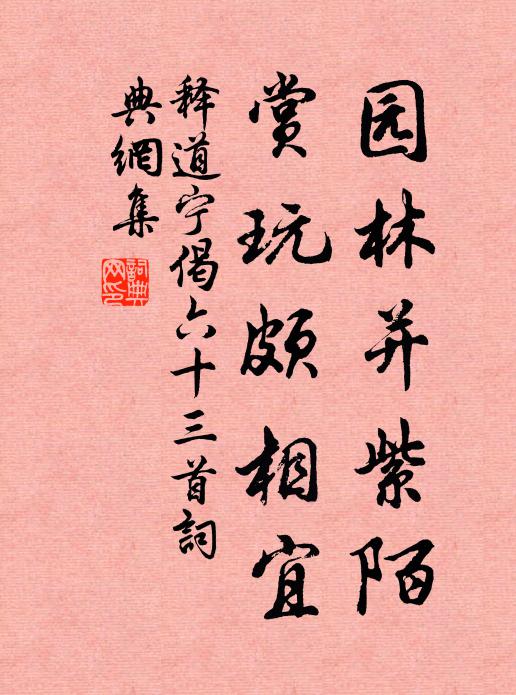 园林并紫陌
赏玩颇相宜
释道宁偈六十三首詞
典網集
詞典网印